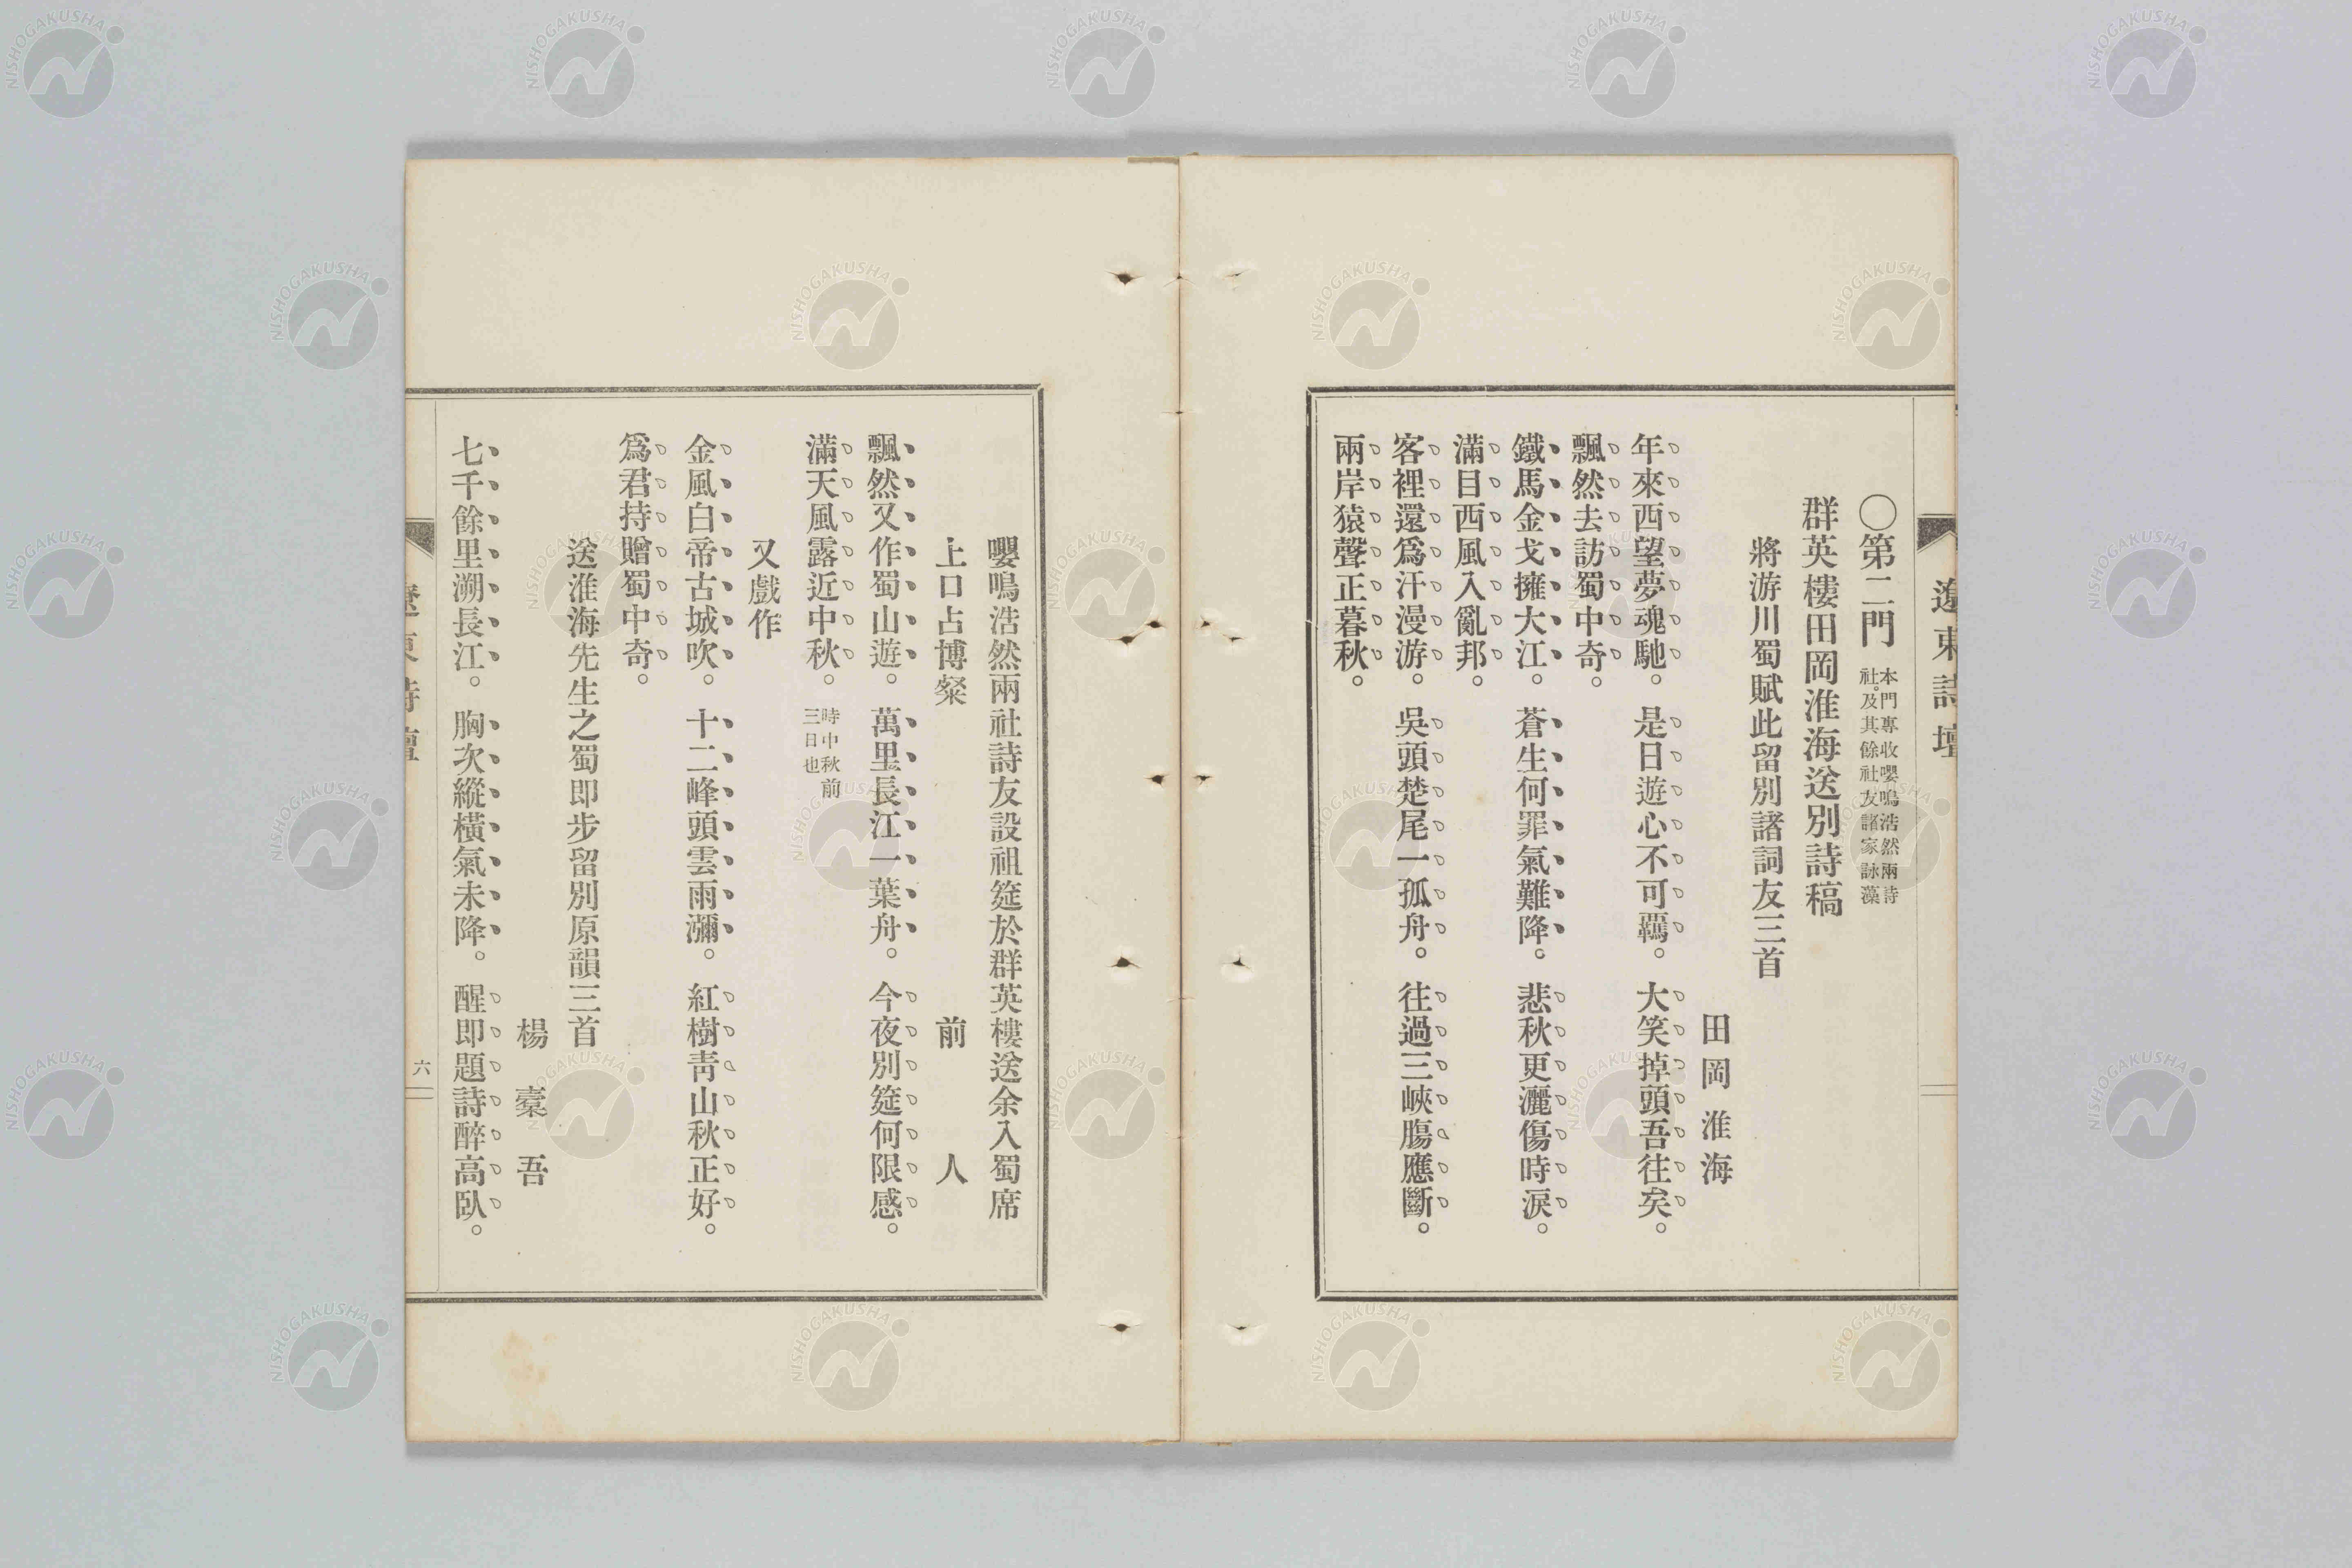 遼東詩壇
〇第二門
本門專收嚶鳴浩然兩詩
社。及其餘社友諸家詠藻
群英樓田岡淮海送別詩稿
將游川蜀賦此留別諸詞友三首
田岡淮海
年來西望夢魂馳。是日遊心不可羈。大笑掉頭吾往矣。
飄然去訪蜀中奇。
鐵馬金戈擁大江。蒼生何罪氣難降。悲秋更灑傷時淚。
滿目西風入亂邦。
客裡還爲汗漫游。吳頭楚尾一孤舟。往過三峽膓應斷。
兩岸猿聲正暮秋。
嚶鳴浩然兩社詩友設祖筵於群英樓送余入蜀席
上口占博粲 前人
飄然又作蜀山遊。萬里長江一葉舟。今夜別筵何限感。
滿天風露近中秋。
時中秋前
三日也
又戲作
金風白帝古城吹。十二峰頭雲雨瀰。紅樹靑山秋正好。
爲君持贈蜀中奇。
送淮海先生之蜀即步留別原韻三首
楊橐吾
七千餘里溯長江。胸次縱橫氣未降。醒即題詩醉高臥。
遼東詩壇
六
NISHOGAKUSHA